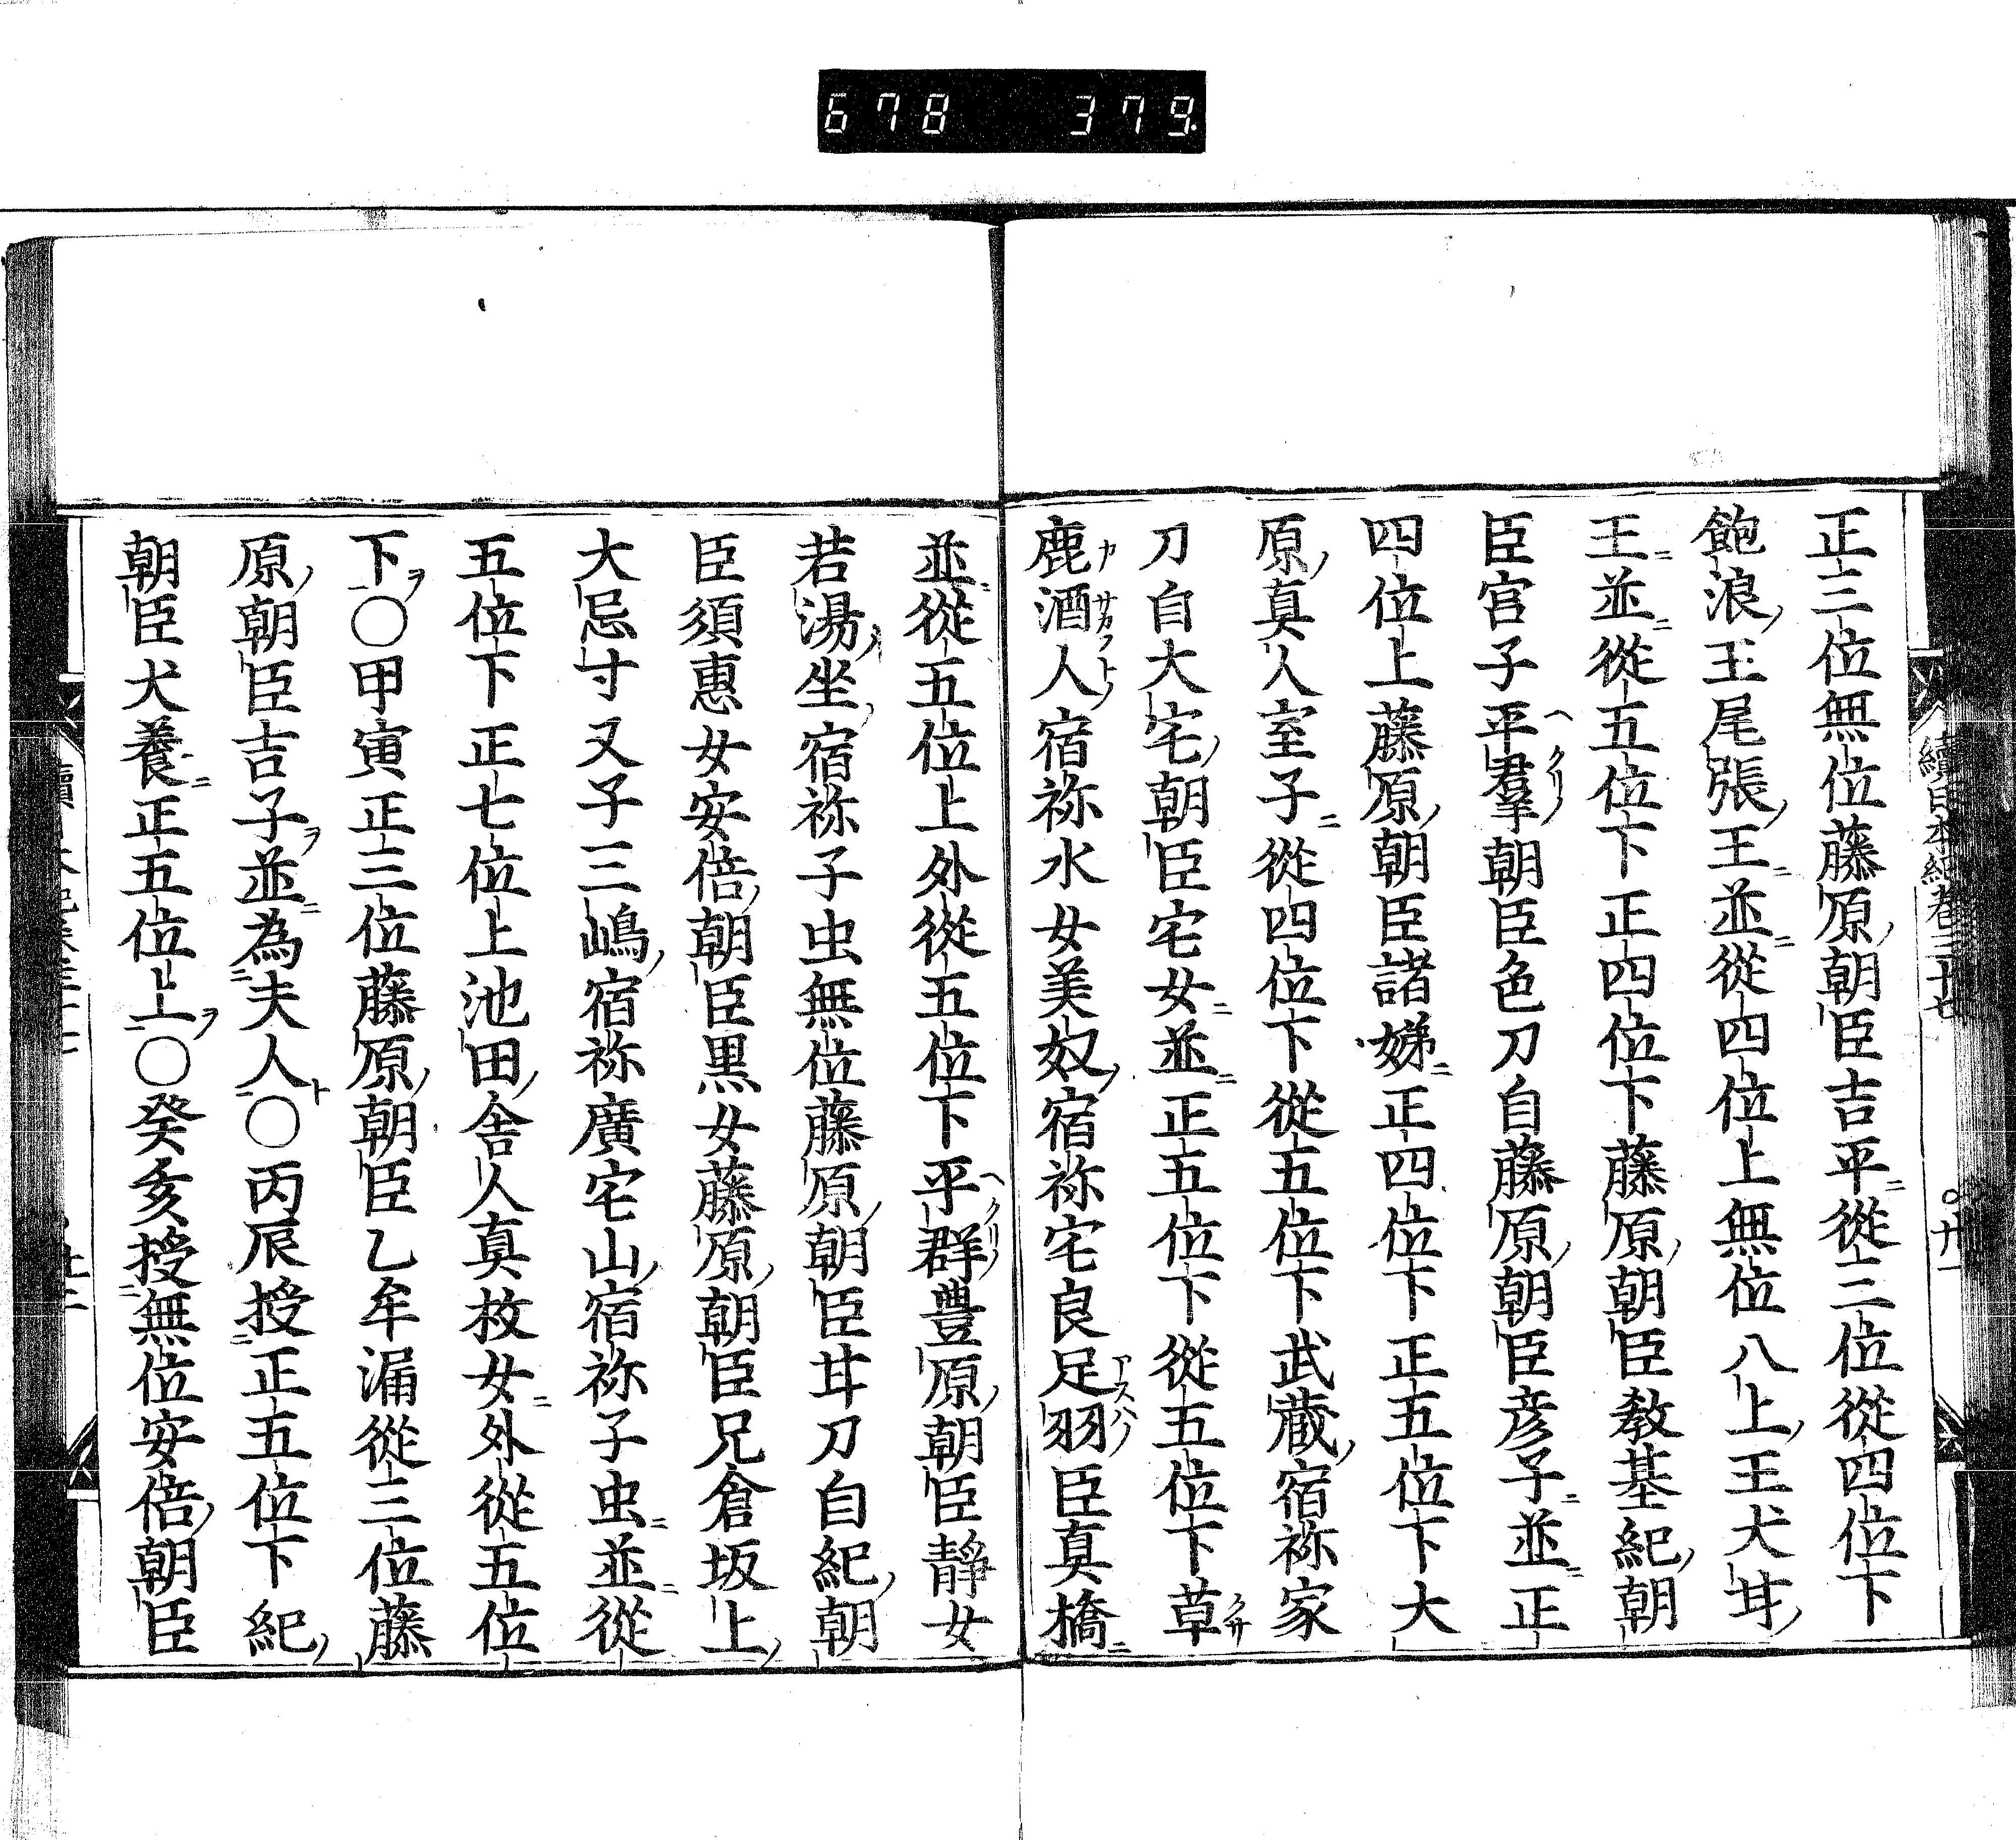 678 379.
續日本紀卷三十七
〇廿一
正三位無位藤原朝臣吉平從三位從四位下
飽浪王尾張王並從四位上無位八上王犬甘
王並從五位下正四位下藤原朝臣教基紀朝
臣宮子平羣朝臣色刀自藤原朝臣彦子並正
四位上藤原朝臣諸娣正四位下正五位下大
原真人室子從四位下從五位下武蔵宿祢家
刀自大宅朝臣宅女並正五位下從五位下草
鹿酒人宿祢水女美奴宿祢宅良足羽臣真橋
並從五位上外從五位下平群豊原朝臣靜女
若湯坐宿祢子虫無位藤原朝臣甘刀自紀朝
臣須惠女安倍朝臣黒女藤原朝臣兄倉坂上
大忌寸又子三嶋宿祢廣宅山宿祢子虫並從
五位下正七位上池田舎人真枚女外從五位
下〇甲寅正三位藤原朝臣乙牟漏從三位藤
原朝臣吉子並為夫人〇丙辰授正五位下紀
朝臣犬養正五位上〇癸亥授無位安倍朝臣